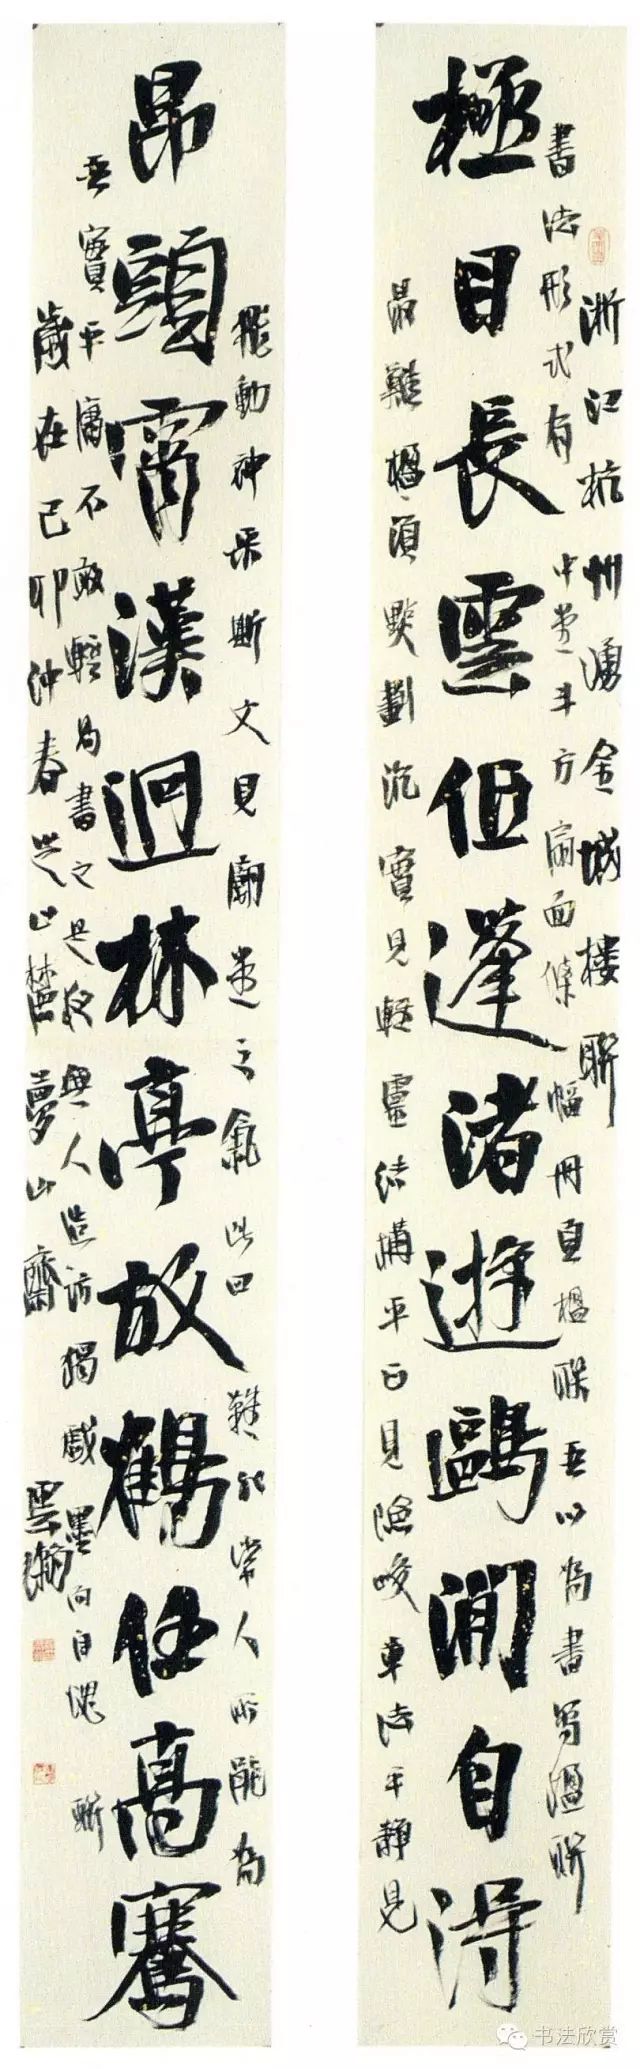 浙江杭州湧金城楼聯
書法形式有中堂斗方扇面條幅冊頁楹聯吾以為書写楹聯
極目長雲但逢渚遊鷗閒自得
最難楹須點劃沉實見輕靈结構平正見險峻章法平静見
飛動神采斯文見廟堂之氣此曰難非常人所能為
昂頭霄漢迥林亭放鶴任高騫
吾實平庸不敢輕為書之是夜與人造訪獨戲墨向自愧
歲在己卯仲春芝山楚夢山齋雲瀚
書法欣赏